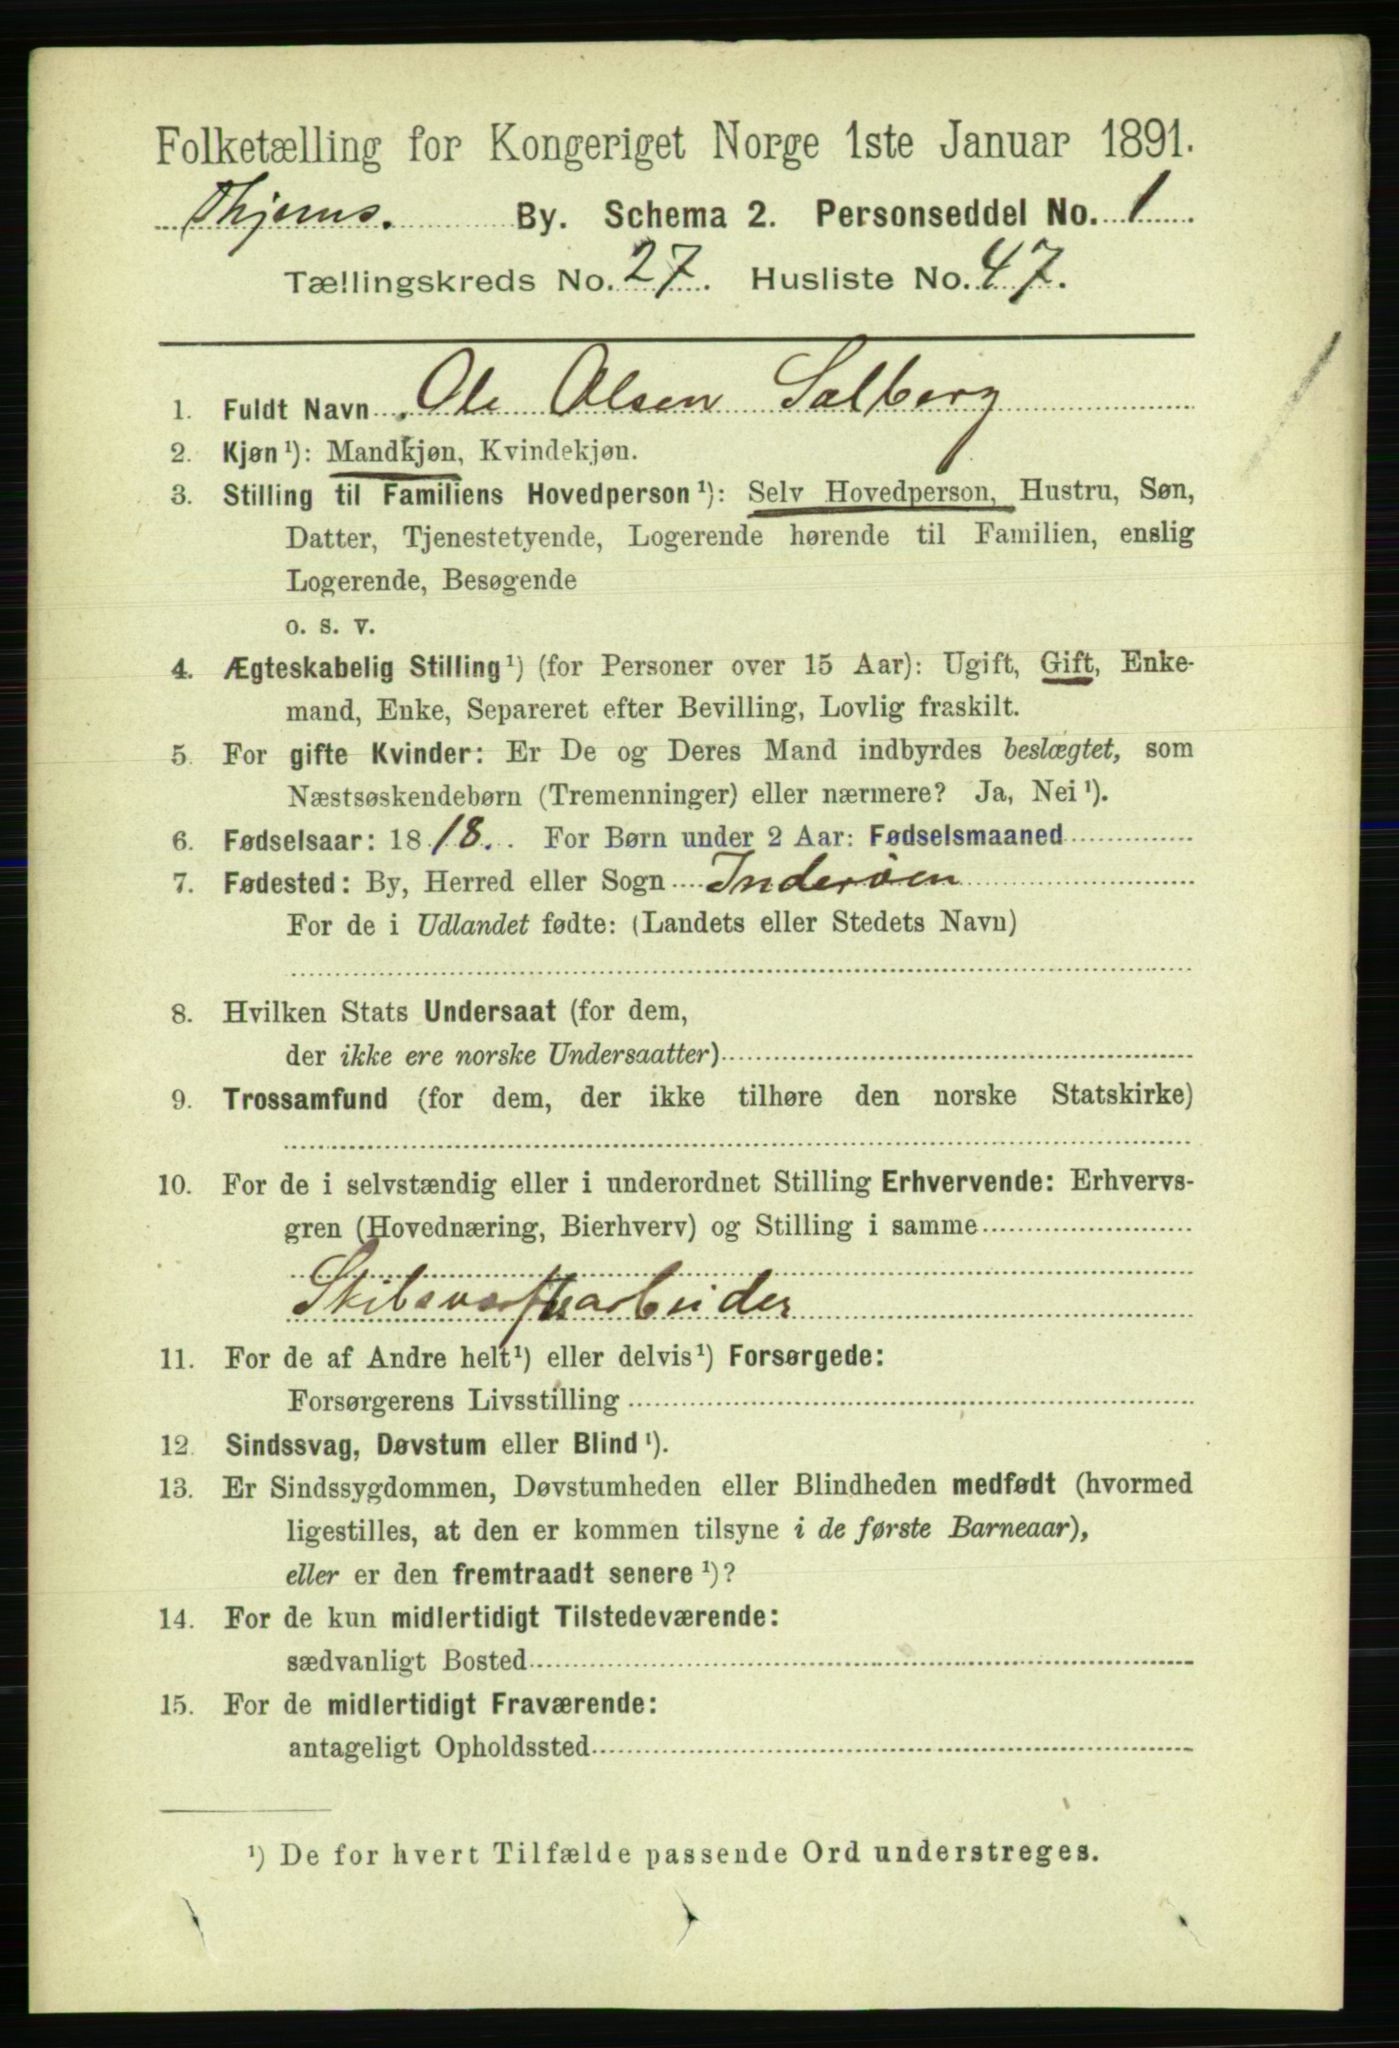 Folketælling for Kongeriget Norge 1ste Januar 1891.
Thjems. By. Schema 2. Personseddel No. 1
Tællingskreds No. 27. Husliste No. 47.
1. Fuldt Navn Ole Olsen Salberg
2. Kjøn¹): Mandkjøn, Kvindekjøn.
3. Stilling til Familiens Hovedperson¹): Selv Hovedperson, Hustru, Søn,
Datter, Tjenestetyende, Logerende hørende til Familien, enslig
Logerende, Besøgende
o. s. v.
4. Ægteskabelig Stilling¹) (for Personer over 15 Aar): Ugift, Gift, Enke-
mand, Enke, Separeret efter Bevilling, Lovlig fraskilt.
5. For gifte Kvinder: Er De og Deres Mand indbyrdes beslægtet, som
Næstsøskendebørn (Tremenninger) eller nærmere? Ja, Nei¹).
6. Fødselsaar: 1818. For Børn under 2 Aar: Fødselsmaaned
7. Fødested: By, Herred eller Sogn Inderøen
For de i Udlandet fødte: (Landets eller Stedets Navn)
8. Hvilken Stats Undersaat (for dem,
der ikke ere norske Undersaatter)
9. Trossamfund (for dem, der ikke tilhøre den norske Statskirke)
10. For de i selvstændig eller i underordnet Stilling Erhvervende: Erhvervs-
gren (Hovednæring, Bierhverv) og Stilling i samme
Skibsværftsarbeider
11. For de af Andre helt¹) eller delvis¹) Forsørgede:
Forsørgerens Livsstilling
12. Sindssvag, Døvstum eller Blind¹).
13. Er Sindssygdommen, Døvstumheden eller Blindheden medfødt (hvormed
ligestilles, at den er kommen tilsyne i de første Barneaar),
eller er den fremtraadt senere¹)?
14. For de kun midlertidigt Tilstedeværende:
sædvanligt Bosted
15. For de midlertidigt Fraværende:
antageligt Opholdssted
¹) De for hvert Tilfælde passende Ord understreges.